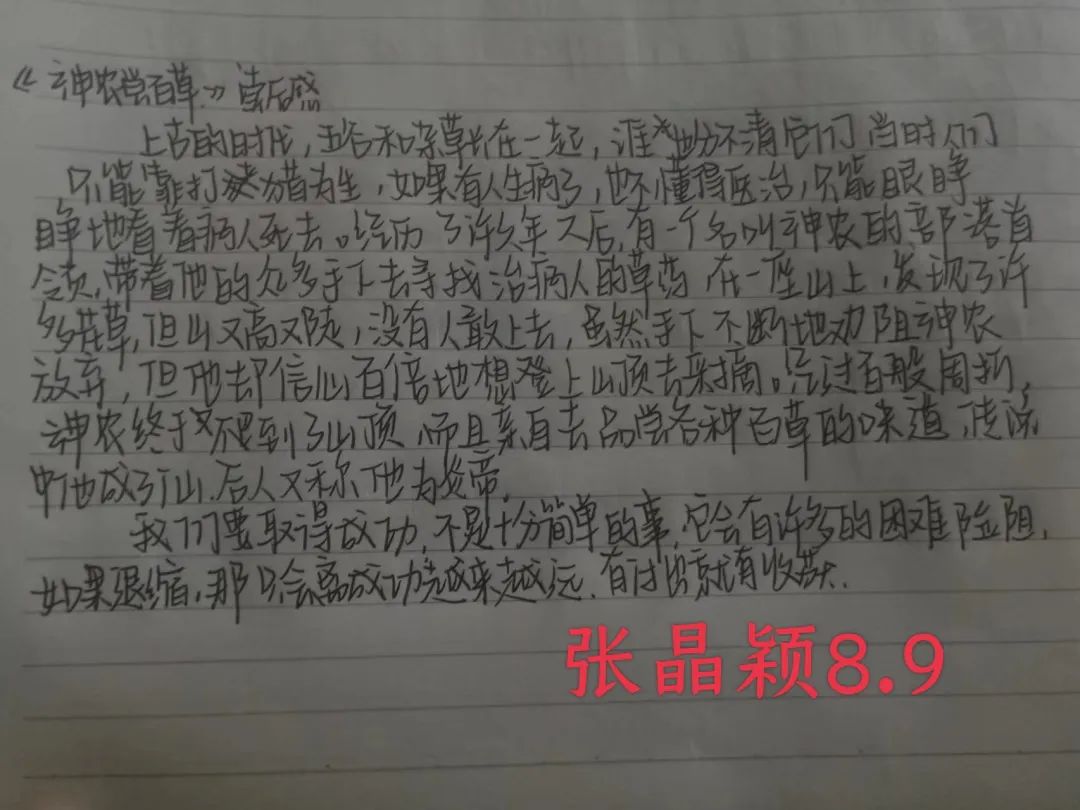 《神农尝百草》读后感
上古的时代,五谷和杂草长在一起,谁也分不清它们 当时人们
只能靠打猎为生,如果有人生病了,也不懂得医治,只能眼睁
睁地看着病人死去。经历了许久年之后,有一个名叫神农的部落首
领,带着他的众多手下去寻找治病人的草药 在一座山上,发现了许
多花草,但山又高又陡,没有人敢上去,虽然手下不断地劝阻神农
放弃,但他却信心百倍地想登上山顶去采摘。经过百般周折,
神农终于爬到了山顶,而且亲自去品尝各种百草的味道,传说
中他成了仙.后人又称他为炎帝.
我们要取得成功,不是十分简单的事,它会有许多的困难险阻,
如果退缩,那只会离成功越来越远.有付出就有收获.
张晶颖8.9